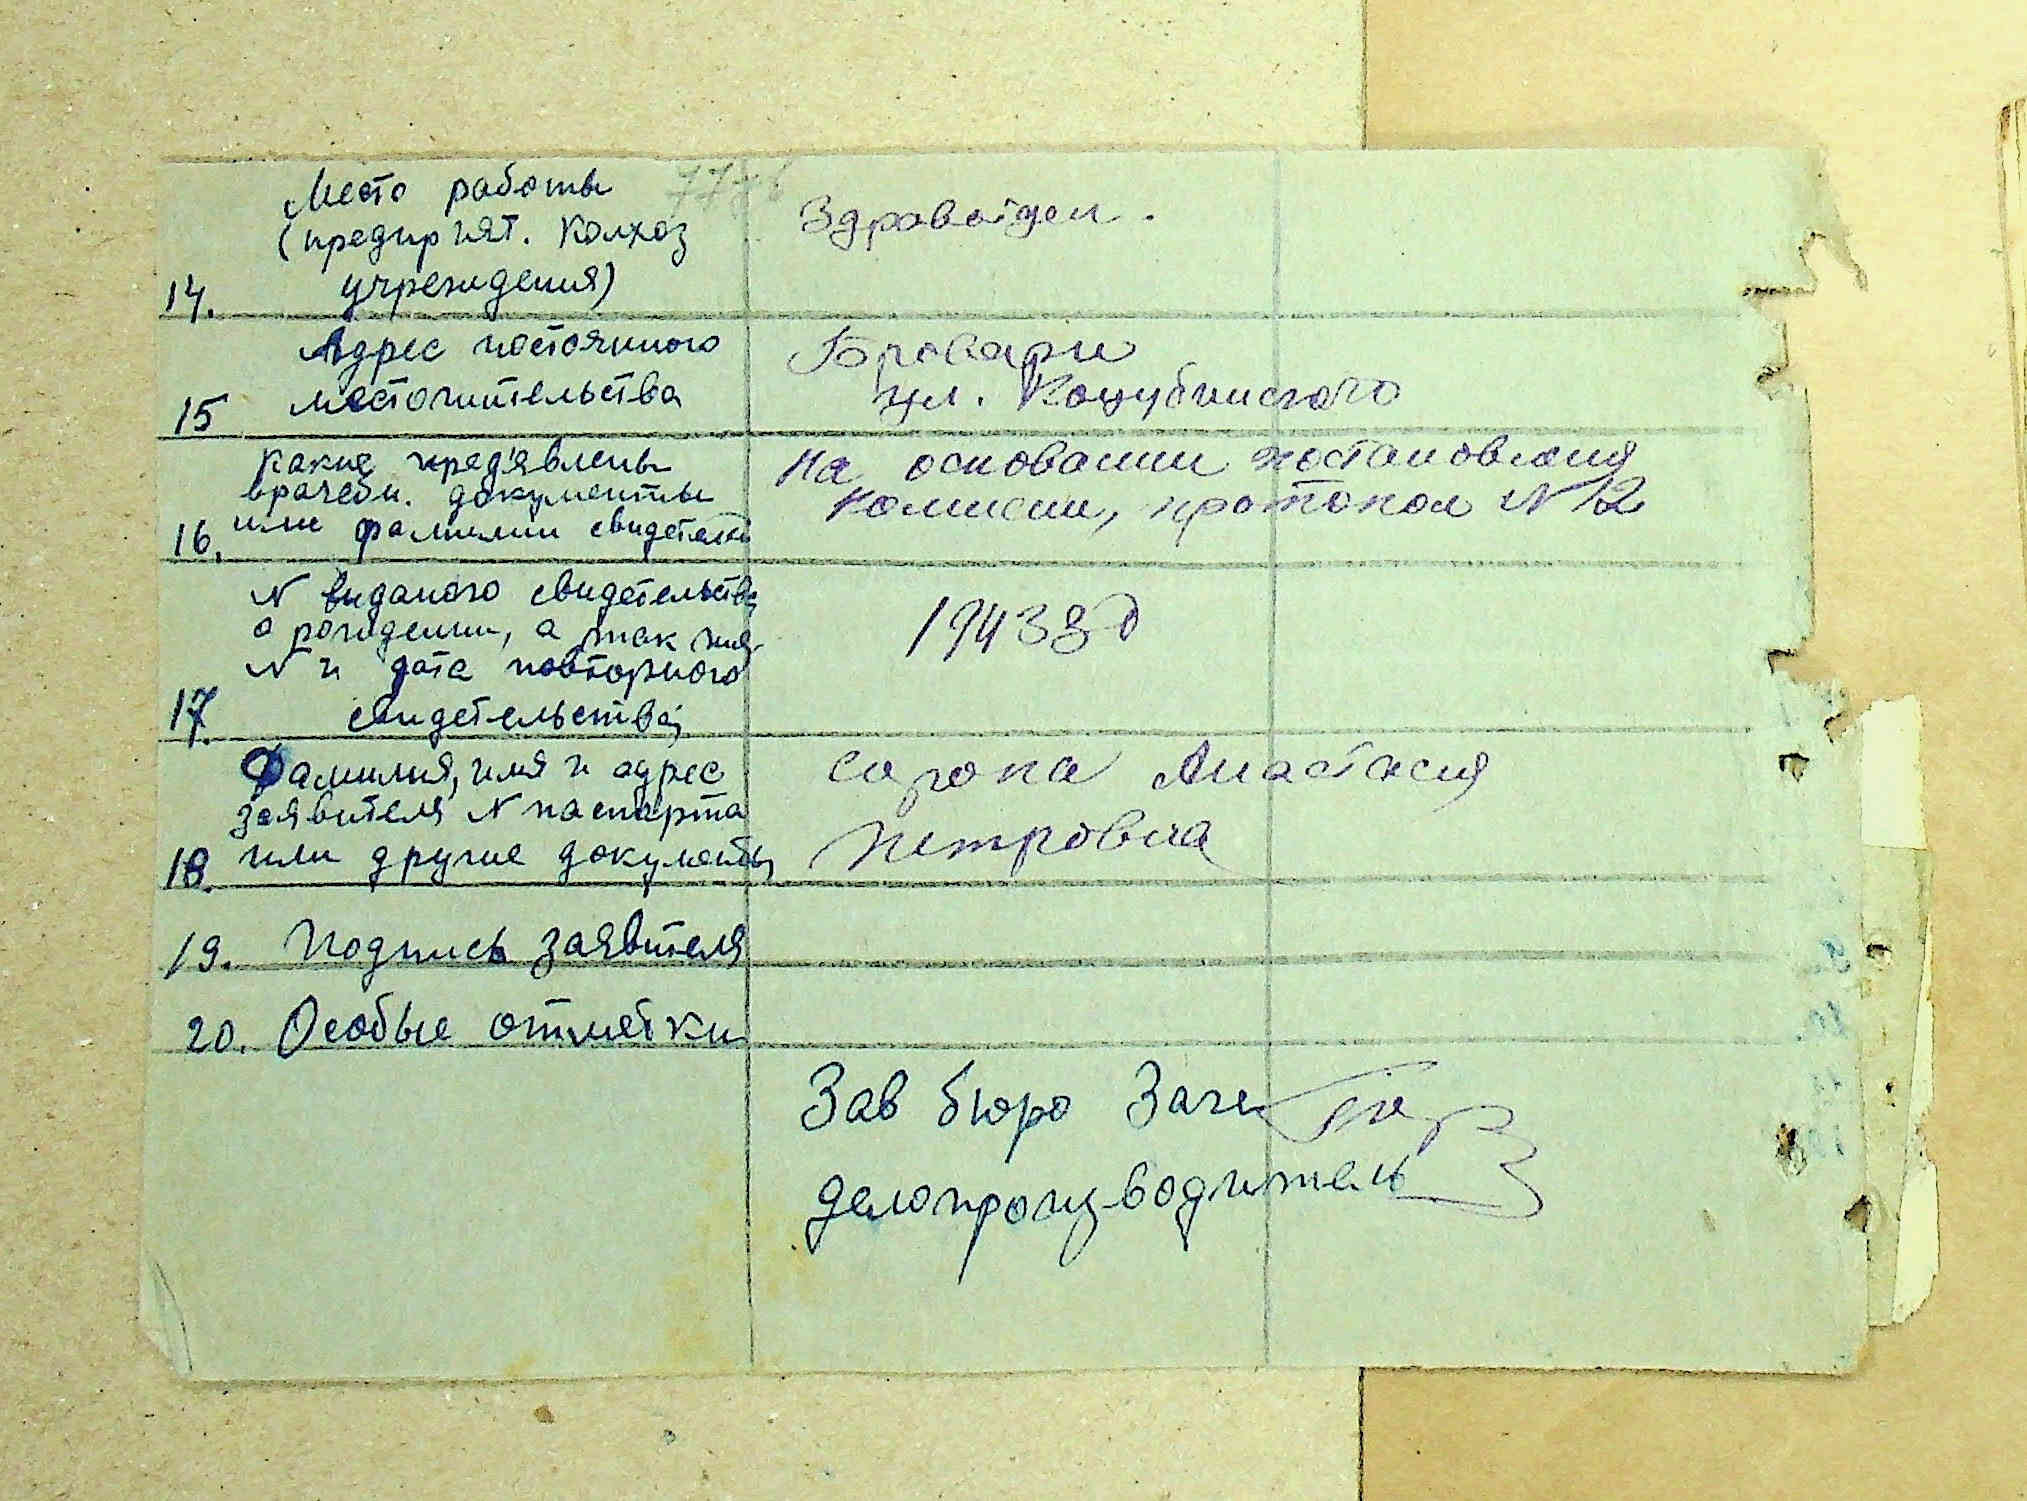 Место работы
(предприят. Колхоз
учреждения)
14.
Здравотдел.
Адрес постоянного
местожительства
15
Бровари
ул. Коцубинского
Какие пред'явлены
врачебн. документы
или фамилии свидетелей
16.
На основании постановления
комиссии, протокол N 12
N выданого свидетельства
о рождении, а так же
N и дата повторного
свидетельства
17.
Фамилия, имя и адрес
заявителя N паспорта
или другие документы
18.
Сорока Анастасия
Петровна
19. Подпись заявителя
20. Особые отметки
Зав бюро Загс
делопроизводитель